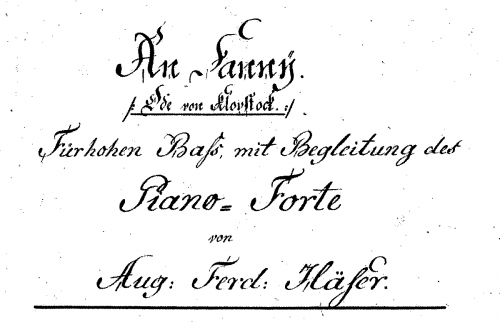 An Fanny.
/: Ode von Klopstock. :/
Für hohen Baſs, mit Begleitung des
Piano= Forte
von
Aug: Ferd: Häſer.